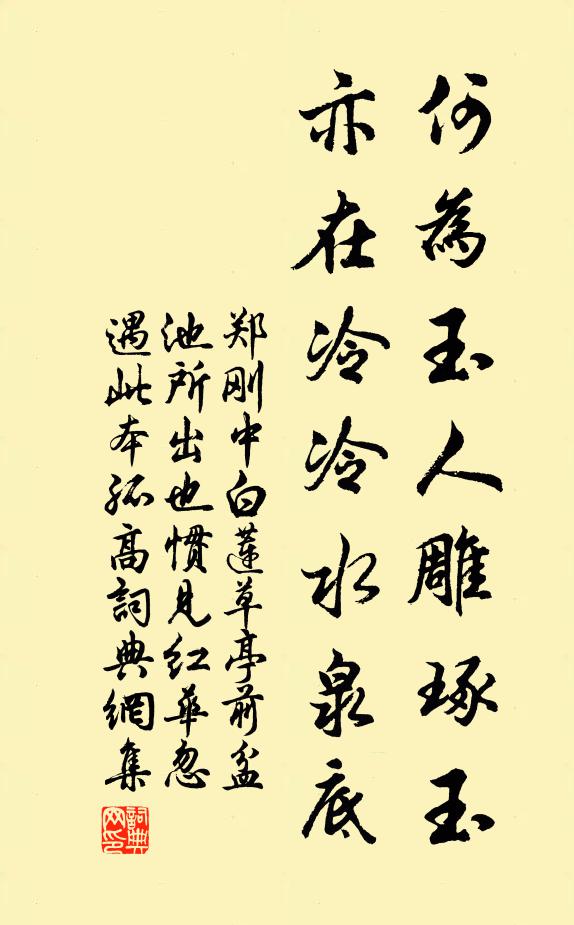 何為玉人雕琢玉
亦在冷冷水泉底
郑刚中白蓮草亭前盆
池所出也慣見红華忽
遇此本孤高詞典網集
詞典网印